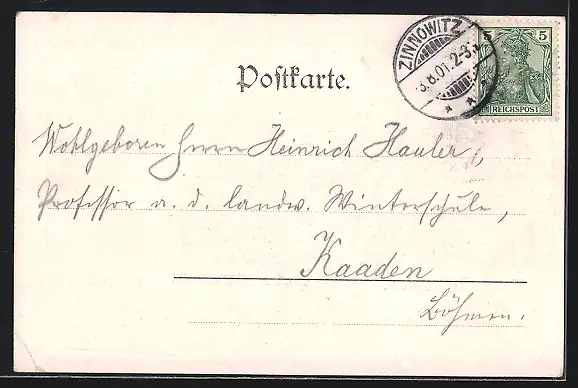 ZINNOWITZ
3.8.01.2-3N.
5 5
REICHSPOST
Postkarte.
Wohlgeboren Herrn Heinrich Hauler,
Professor a. d. landw. Winterschule,
Kaaden
Böhmen.